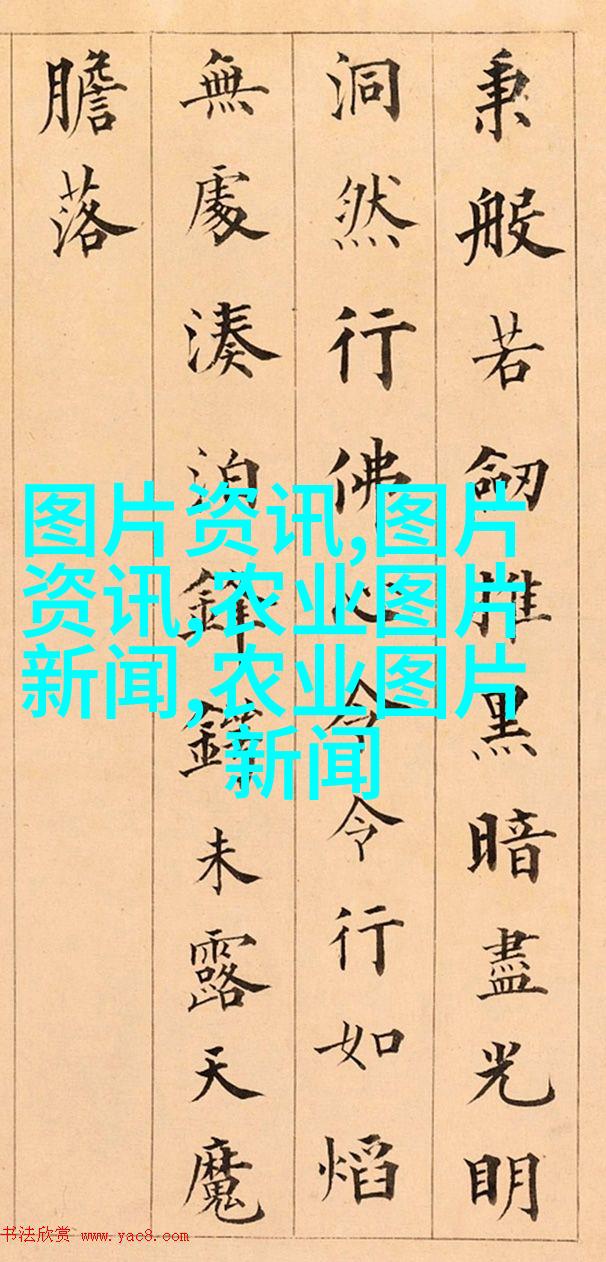 秉般若劒推黑暗盡光明
洞然行佛心令令行如熖
無處湊泊鋒未露天魔
膽落
图片资讯,图片
资讯,农业图片
新闻,农业图片
新闻
书法欣赏 www.yac8.com